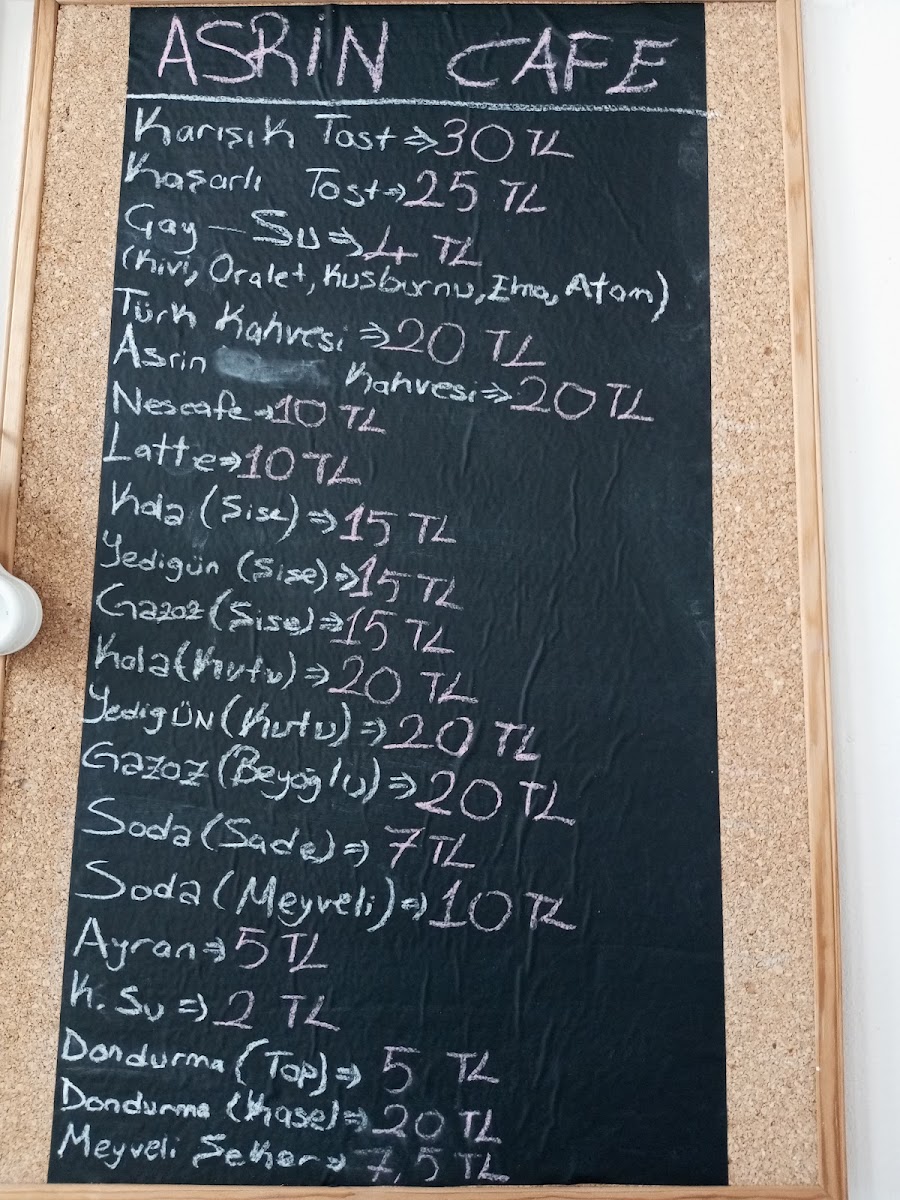 ASRİN CAFE
Karışık Tost ⇒ 30 TL
Kaşarlı Tost ⇒ 25 TL
Çay - Su ⇒ 4 TL
(Kivi, Oralet, Kusburnu, Elma, Atom)
Türk Kahvesi ⇒ 20 TL
Asrin Kahvesi ⇒ 20 TL
Nescafe ⇒ 10 TL
Latte ⇒ 10 TL
Kola (Şise) ⇒ 15 TL
Yedigün (Şise) ⇒ 15 TL
Gazoz (Şise) ⇒ 15 TL
Kola (Kutu) ⇒ 20 TL
YedigÜN (Kutu) ⇒ 20 TL
Gazoz (Beyoğlu) ⇒ 20 TL
Soda (Sade) ⇒ 7 TL
Soda (Meyveli) ⇒ 10 TL
Ayran ⇒ 5 TL
K. Su ⇒ 2 TL
Dondurma (Top) ⇒ 5 TL
Dondurma (Kase) ⇒ 20 TL
Meyveli Şeker ⇒ 7,5 TL